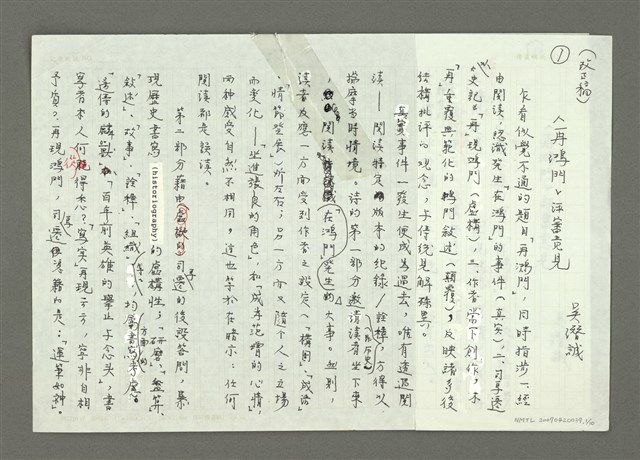 (改正稿)
①
〈再鴻門〉評審意見
吳潛誠
乍看似覺不通的題目「再鴻門」,同時指涉一、經
由閱讀,認識發生在「鴻門」的事件(真實),二、司馬遷
《史記》「再現鴻門」(虛構),三、作者當下創作,來
「再」重覆典範化的鴻門敘述(顛覆),反映諸多後
結構批評的觀念,與傳統見解殊異。
真實事件一發生便成為過去,唯有透過閱
讀——閱讀特定版本的紀錄/詮釋,(即歷史)方得以
揣摩當時情境。詩的第一部分邀請讀者坐下來
,閱讀(在鴻門發生的)大事。
讀者反應一方面受到作者之設定(「構圖」、「段落」
、情節發展」)所左右;另一方面又隨個人之立場
而變化——「坐進張良的角色」,和「成為范增的心情」,
兩種感受自然不相同,這也等於在暗示:任何
閱讀都是誤讀。
第二部分藉由虛擬的司馬遷的後設答問,暴
現歷史書寫(historiography)的虛構性;「研磨」、盤算、
敘述」、「故事」、「詮釋」、「組織」
「遙倍的麟獸」、「百年前英雄的舉止與念頭」,書
寫者本人何從得悉?寫「實」、再現云云,寧非自相
矛盾?「再現鴻門,司馬遷
「運筆如神」。
NMTL 20090420029.1/10